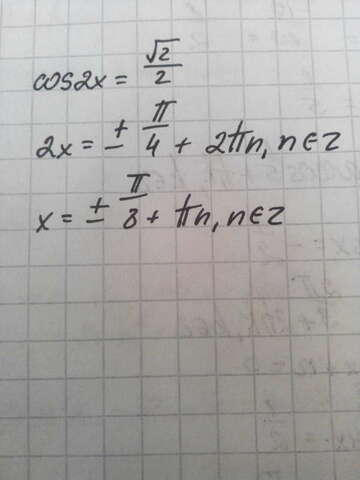 cos2x = √2/2
2x = ± π/4 + 2πn, n∈z
x = ± π/8 + πn, n∈z